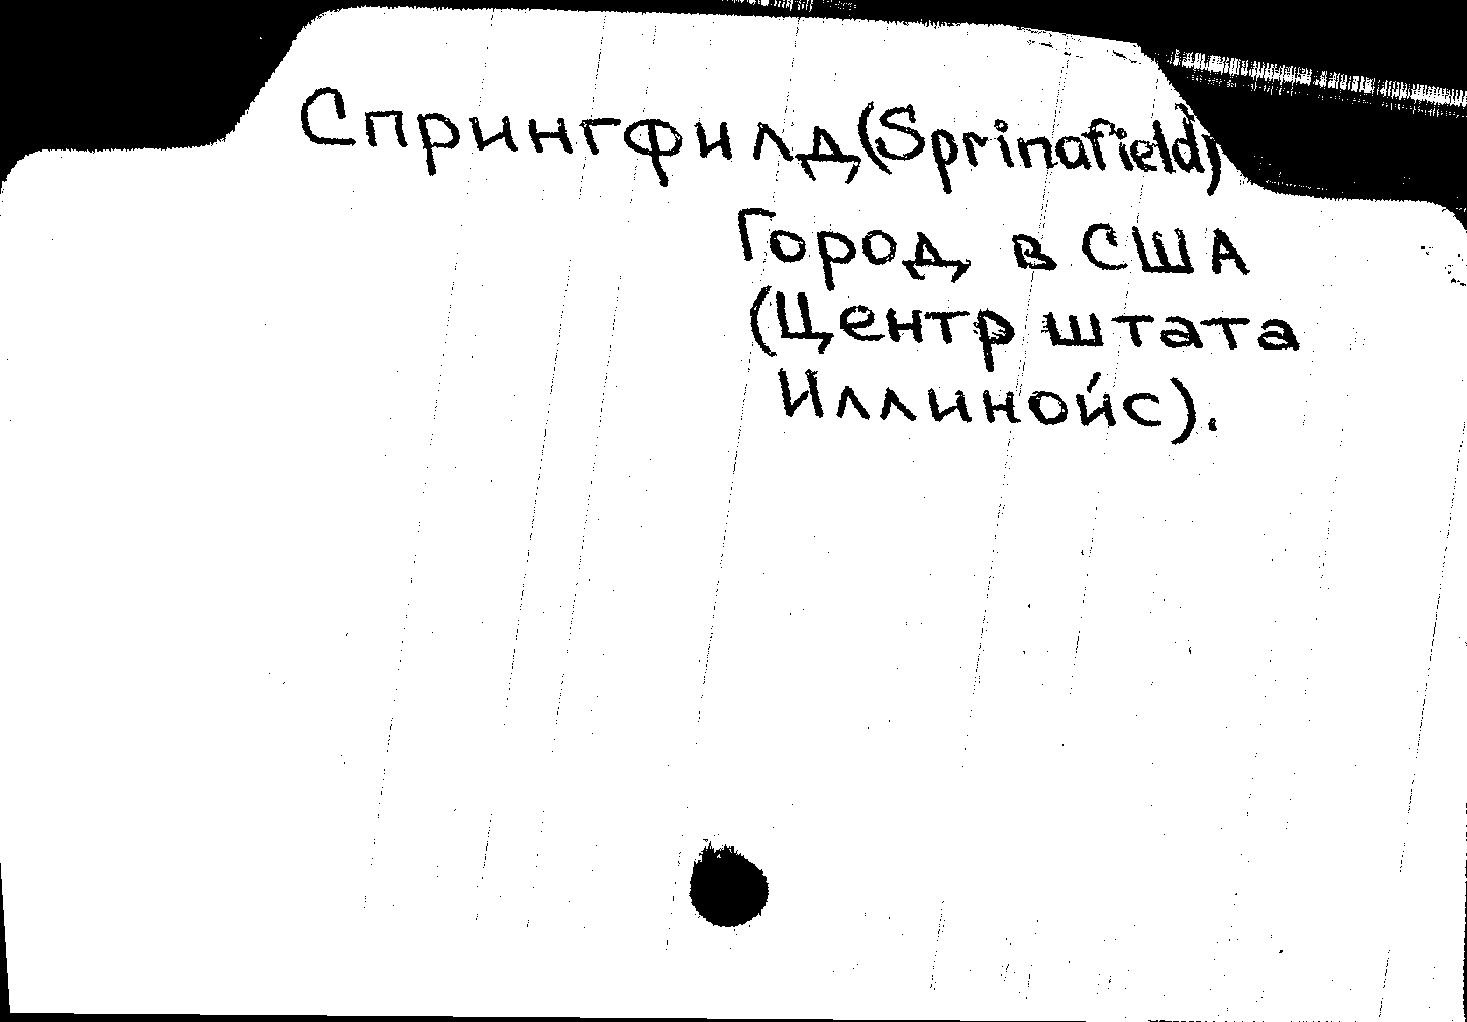 Спрингфилд(Springfield)
Город в США
(Центр штата
Иллинойс).